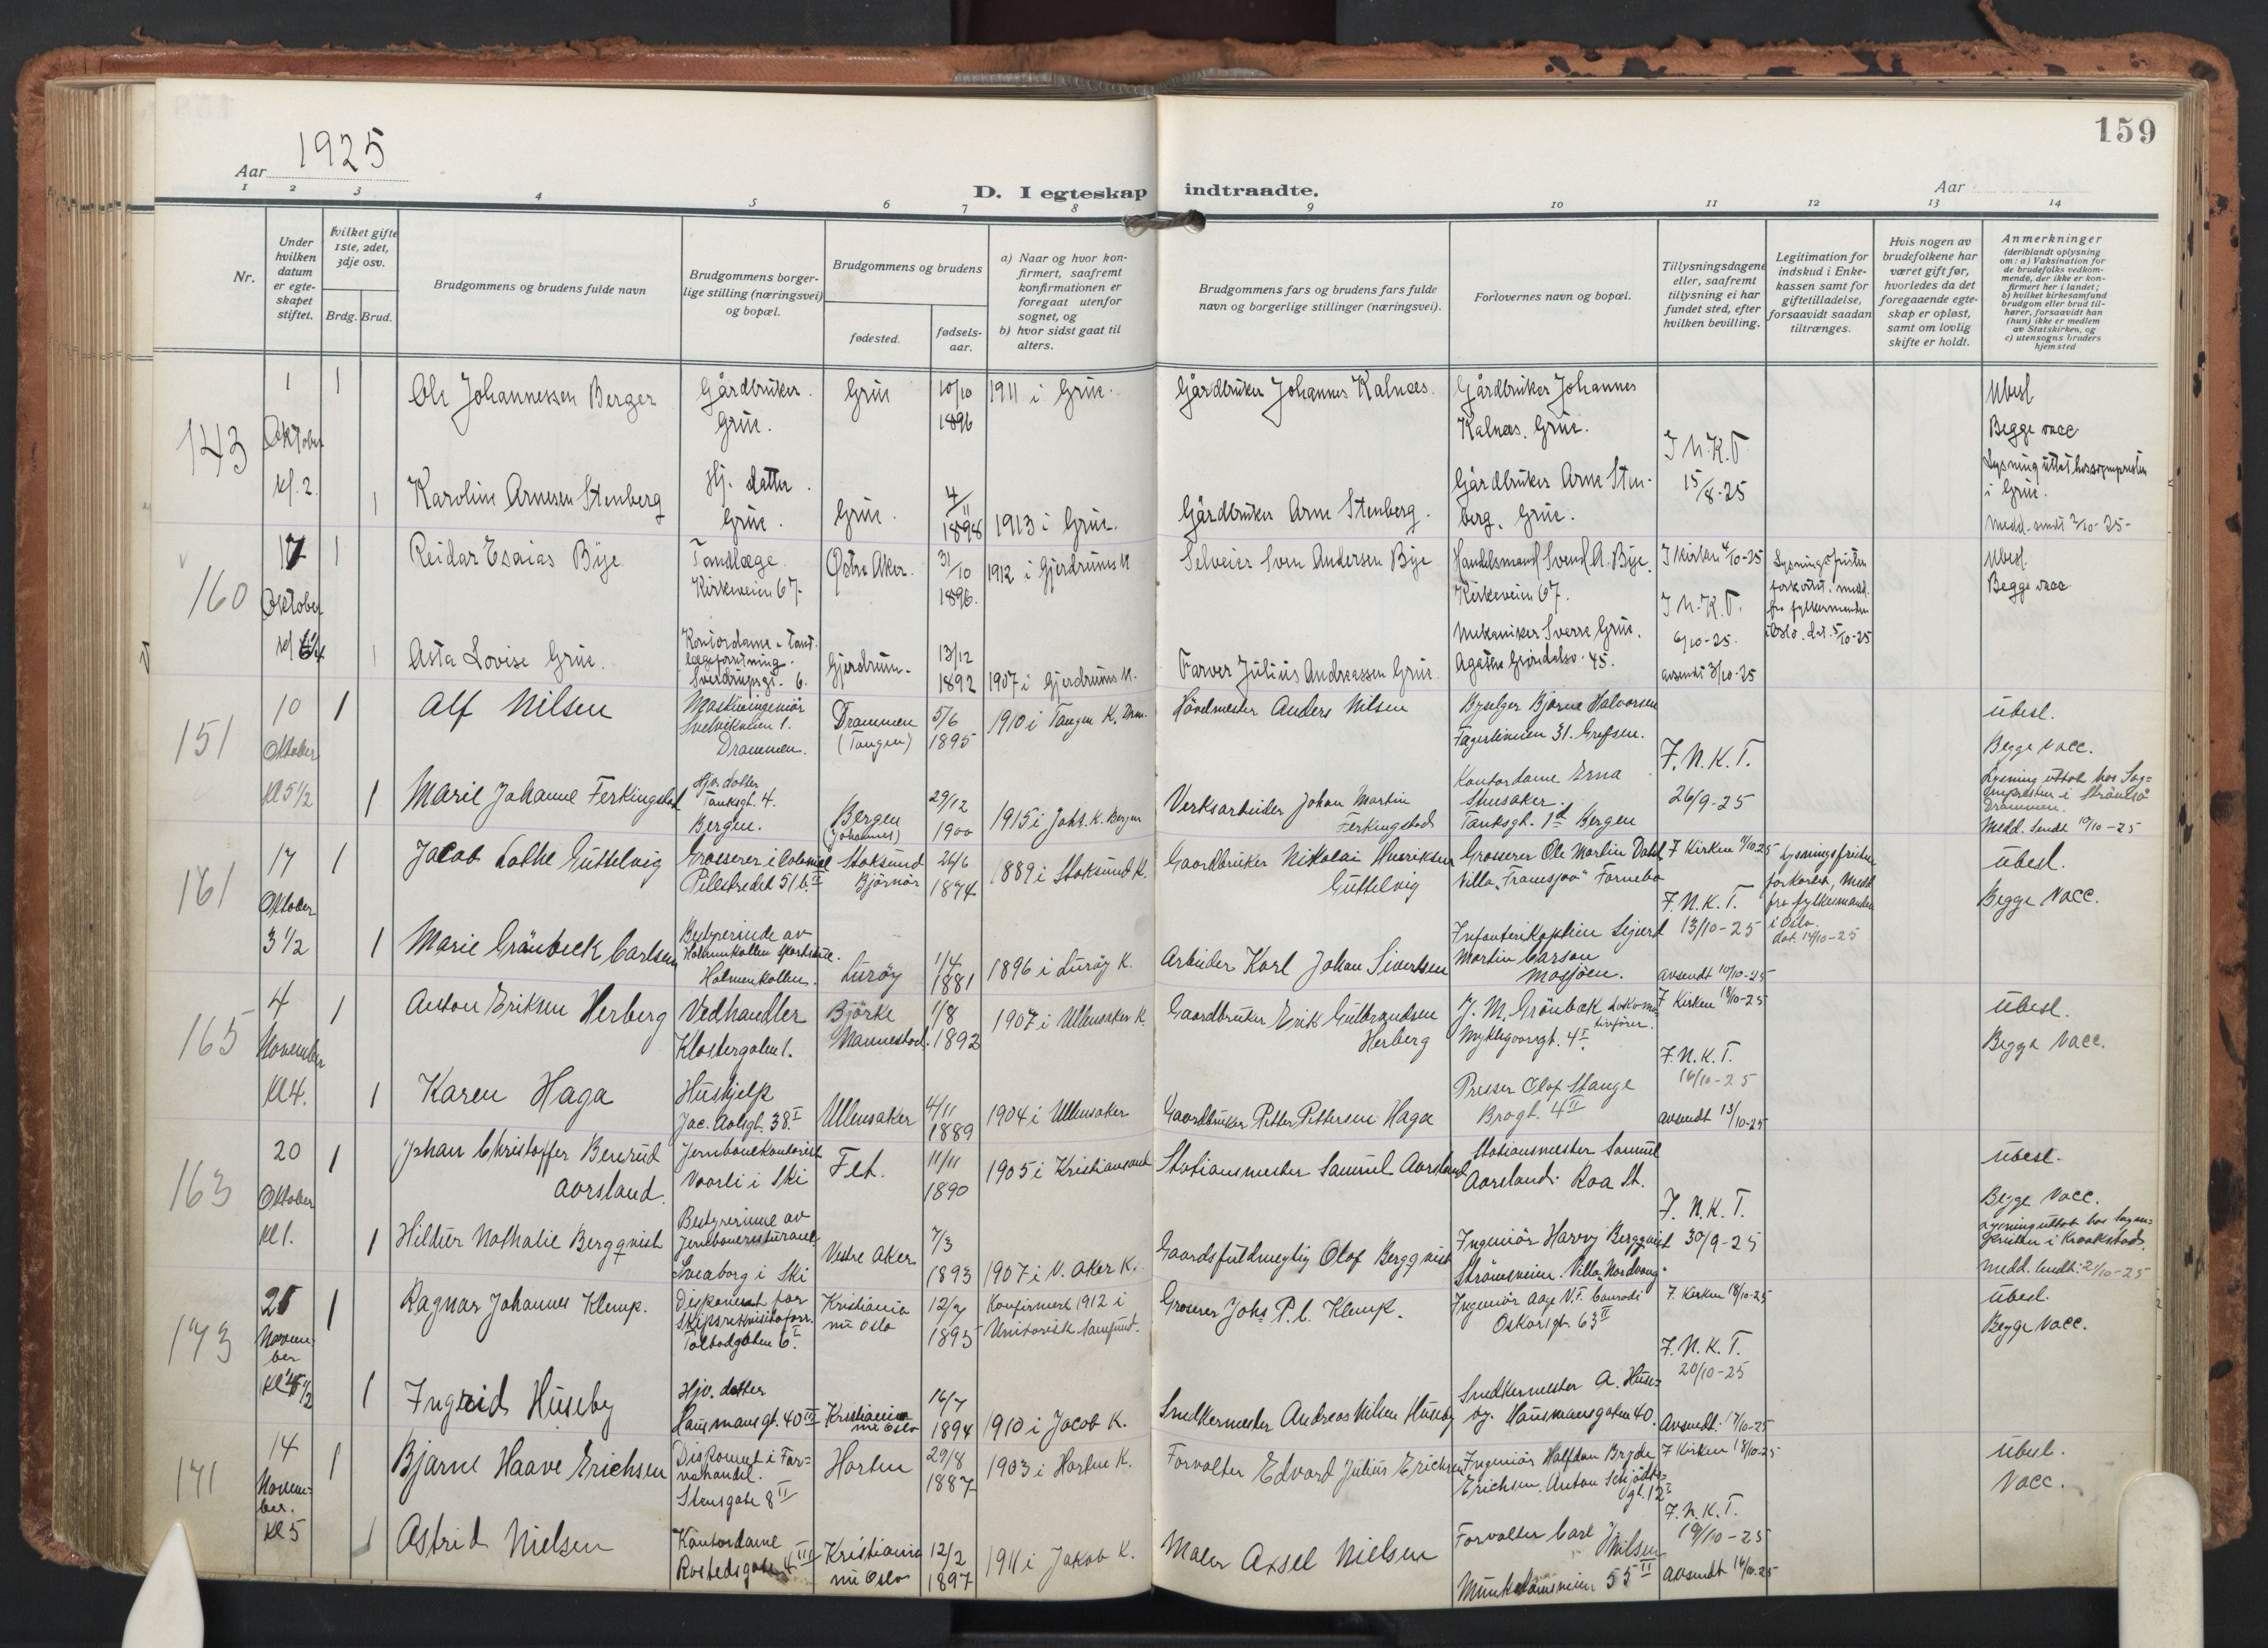 159
Aar 1925
D. I egteskap indtraadte.
Aar
1 2 3 4 5 6 7 8 9 10 11 12 13 14
Nr.
Under
hvilken
datum
er egte-
skapet
stiftet.
Hvilket gifte
1ste, 2det,
3dje osv.
Brdg. Brud.
Brudgommens og brudens fulde navn
Brudgommens borger-
lige stilling (næringsvei)
og bopæl.
Brudgommens og brudens
fødested.
fødsels-
aar.
a) Naar og hvor kon-
firmert, saafremt
konfirmationen er
foregaat utenfor
sognet, og
b) hvor sidst gaat til
alters.
Brudgommens fars og brudens fars fulde
navn og borgerlige stillinger (næringsvei).
Forlovernes navn og bopæl.
Tillysningsdagene
eller, saafremt
tillysning ei har
fundet sted, efter
hvilken bevilling.
Legitimation for
indskud i Enke-
kassen samt for
giftetilladelse,
forsaavidt saadan
tiltrænges.
Hvis nogen av
brudefolkene har
været gift før,
hvorledes da det
foregaaende egte-
skap er opløst,
samt om lovlig
skifte er holdt.
Anmerkninger
(deriblandt oplysning
om: a) Vaksination for
de brudefolks vedkom-
mende, der ikke er kon-
firmert her i landet;
b) hvilket kirkesamfund
brudgom eller brud til-
hører, forsaavidt han
(hun) ikke er medlem
av Statskirken, og
c) utensogns bruders
hjemsted
143
1
Oktober
kl. 2.
1
Ole Johannessen Berger
Gårdbruker.
Grue.
Grue
10/10
1896
1911 i Grue.
Gårdbruker Johannes Kalnæs.
Gårdbruker Johannes
Kalnæs. Grue.
I N.K.T
15/8-25
Ubesl
Begge vacc
i Grue.
1
Karoline Arnesen Stenberg
Hj. datter.
Grue.
Grue.
4/11
1898
1913 i Grue.
Gårdbruker Arne Stenberg.
Gårdbruker Arne Sten-
berg. Grue.
160
17
Oktober
1
Reidar Esaias Bye
Tandlæge.
Kirkeveien 67.
Østre Aker.
31/10
1896.
1912 i Gjerdrums K
Selveier Sven Andersen Bye
Handelsmand Svend A. Bye.
Kirkeveien 67.
I kirken 4/10-25
I N.K.T.
6/10-25.
Lysningsfristen
forkortet. medd.
fra fylkesmanden
i Oslo. dat. 5/10-25
Ubesl.
Begge vacc
1
Asta Lovise Grue.
Gjerdrum.
13/12
1892
1907 i Gjerdrums K.
Farver Julius Andreassen Grue.
Mekaniker Sverre Grue.
avsendt 3/10-25
151
10
Oktober
Kl 5 1/2
1
Alf Nilsen
Maskiningeniör
Svelvikveien 1.
Drammen.
Drammen
(Tangen)
5/6
1895
1910 i Tangen K. Dram.
Hövelmester Anders Nilsen
Byselger Bjarne Halvorsen
Fagerliveien 31. Grefsen.
F.N.K.T.
26/9-25
Ubesl.
Begge vacc.
Drammen.
Medd. sendt 10/10-25
1
Marie Johanne Ferkingstad
Hjv. datter
Tanksgt. 4.
Bergen.
Bergen
(Johannes)
29/12
1900
1915 i Johs. K. Bergen
Verksarbeider Johan Martin
Ferkingstad
Kontordame Erna
Tanksgt. 1d Bergen
161
17
Oktober
3 1/2
1
Jacob Lothe Guttelvig
Pilestredet 51 b. II
Stoksund
Björnör
26/6
1874
1889 i Stoksund K.
Gaardbruker Nikolai Henriksen
Guttelvig
Grosserer Ole Martin Dahl
F Kirken 11/10 25
F.N.K.T.
13/10-25
Lysningsfristen
forkortet, Medd
fra fylkesmanden
i Oslo.
Ubesl.
Begge vacc.
1
Marie Grönbeck Carlsen
Bestyrerinde av
Holmenkollen.
Luröy
1/4
1881
1896 i Luröy K.
Arbeider Karl Johan Sivertsen
Infanterikaptein Sigurd
Martin Carson
Mosjöen.
avsendt 10/10-25
165
4
November
Kl 4.
1
Anton Eriksen Herberg
Vedhandler
Klostergaten 1.
Björke
Mannestad.
1/8
1892
1907 i Ullensaker K.
Gaardbruker Erik Gulbrandsen
Herberg
J. M. Grönbak Lokomo-
tivförer.
F Kirken 18/10-25
F.N.K.T.
16/10-25
Ubesl.
Begge vacc.
1
Karen Haga
Hushjelp
Jac. Aalsgt. 38 I
Ullensaker
4/11
1889
1904 i Ullensaker
Gaardbruker Petter Pettersen Haga
Presser Olaf Stange
Brogt. 4 II
avsendt 13/10-25
163
20
Oktober
Kl 1.
1
Johan Christoffer Benrud
Aarsland.
Jernbanekontorist
Vaarli i Ski
Fet.
11/11
1890
1905 i Kristiansand
Stationsmester Samuel Aarsland
Stationsmester Samuel
Aarsland. Roa St.
F.N.K.T.
30/9-25
Ubesl.
Begge vacc.
1
Hildur Nathalie Bergqvist
Bestyrerinne av
Sveaborg i Ski
Vestre Aker
7/3
1893
1907 i V. Aker K.
Gaardsfuldmegtig Olaf Bergqvist
Ingeniör Harry Bergqvist
Strömsveien. Villa "Nordvang"
173
21
Novem-
ber
1
Ragnar Johannes Klemp.
Disponent for
Tolbodgaten 6 I.
Kristiania
nu Oslo
12/7
1895
Konfirmert 1912 i
Unitarisk Samfund.
Groserer Johs. P. C. Klemp.
Ingeniör Aage V.F. Conradi
Oskarsgt. 63 II
F. Kirken 18/10-25
F.N.K.T.
20/10-25
Ubesl.
Begge vacc.
1
Ingrid Huseby
Hjv. datter
Hausmansgt. 40 II
Kristiania
nu Oslo
16/7
1894
1910 i Jacob K.
Snedkermester Andreas Nilsen Huseby
Snedkermester A. Huse-
by. Hausmansgaten 40.
Avsendt: 17/10-25
171
14
Novem-
ber.
Kl 5
1
Bjarne Haave Erichsen
Disponent i Far-
vehandel.
Stensgate 8 II
Horten
29/8
1887
1903 i Horten K.
Forvalter Edvard Julius Erichsen
Ingeniör Halfdan Bryde
Erichsen. Anton Schjödts-
gt. 12 I
F Kirken 18/10-25
F.N.K.T.
19/10-25
Ubesl.
Vacc.
1
Astrid Nielsen
Kontordame
Rostedsgate 4 III
Kristiania
nu Oslo
12/2
1897
1911 i Jakob K.
Maler Axsel Nielsen
Forvalter Carl
Nilsen
Munkedamsveien 55 II
avsendt 16/10-25